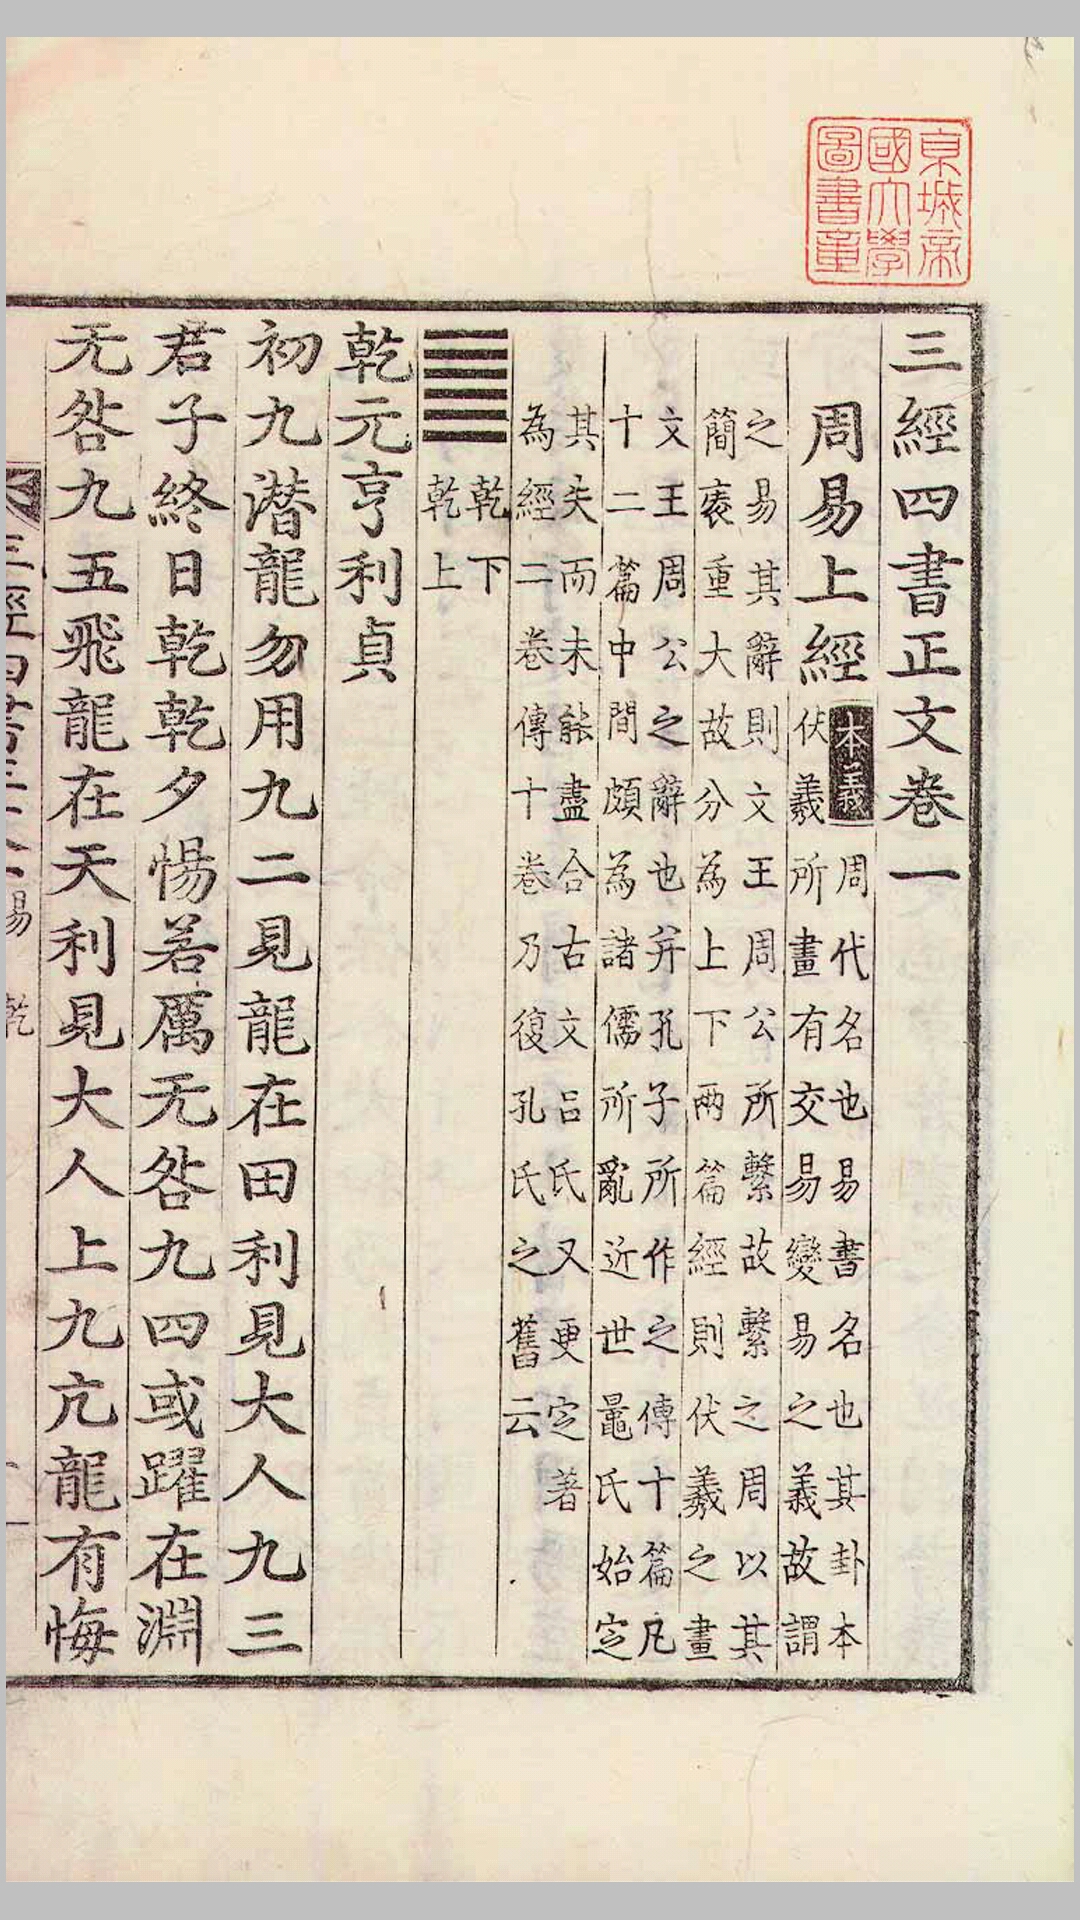 京城帝
國大學
圖書章
三經四書正文卷一
周易上經 本義 周代名也易書名也其卦本
伏羲所畫有交易變易之義故謂
之易其辭則文王周公所繫故繫之周以其
簡袠重大故分為上下兩篇經則伏羲之畫
文王周公之辭也并孔子所作之傳十篇凡
十二篇中間頗為諸儒所亂近世鼂氏始定
其失而未能盡合古文呂氏又更定著
為經二卷傳十卷乃復孔氏之舊云
乾下
乾上
乾元亨利貞
初九潛龍勿用九二見龍在田利見大人九三
君子終日乾乾夕惕若厲无咎九四或躍在淵
无咎九五飛龍在天利見大人上九亢龍有悔
三經四書正文 易 乾